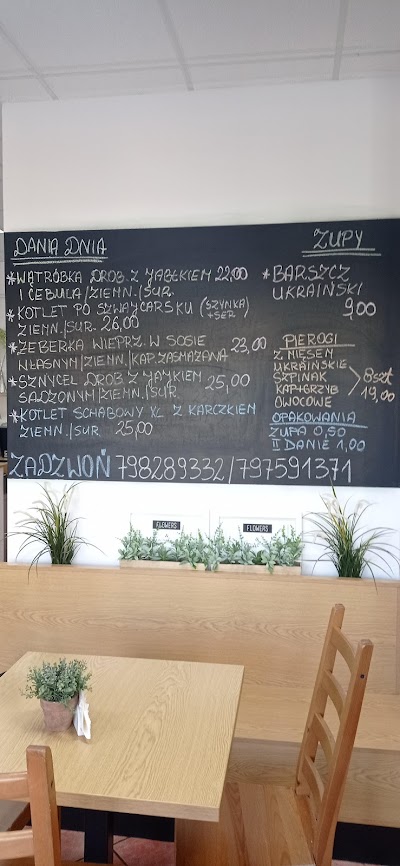 DANIA DNIA
*WĄTRÓBKA DROB. Z JABŁKIEM 22,00
I CEBULĄ/ZIEMN./SUR.
*KOTLET PO SZWAJCARSKU (SZYNKA)
+SER
ZIEMN./SUR. 26,00
*ŻEBERKA WIEPRZ. W SOSIE 23,00
WŁASNYM/ZIEMN./KAP.ZASMAŻANA
*SZNYCEL DROB. Z JAJKIEM 25,00
SADZONYM/ZIEMN./SUR.
*KOTLET SCHABOWY XL Z KARCZKIEM
ZIEMN./SUR. 25,00
ZUPY
*BARSZCZ
UKRAIŃSKI
9,00
PIEROGI
Z MIĘSEM
UKRAIŃSKIE
SZPINAK 8szt
KAP+GRZYB 19,00
OWOCOWE
OPAKOWANIA
ZUPA 0,50
II DANIE 1,00
ZADZWOŃ 798289332/797591371
FLOWERS
FLOWERS